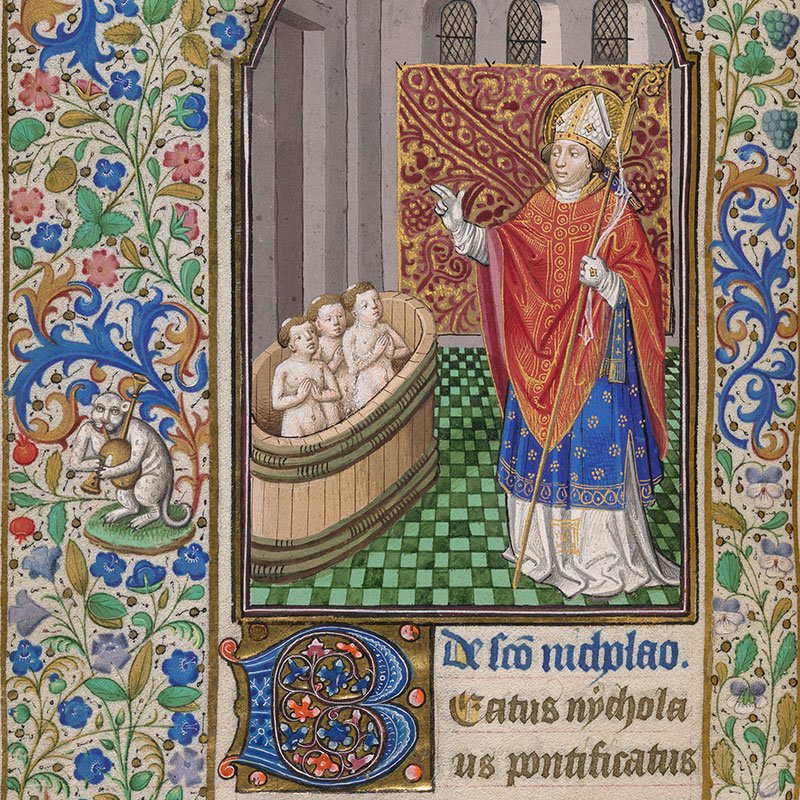 De sc̄o nicholao.
Beatus nychola
us pontificatus